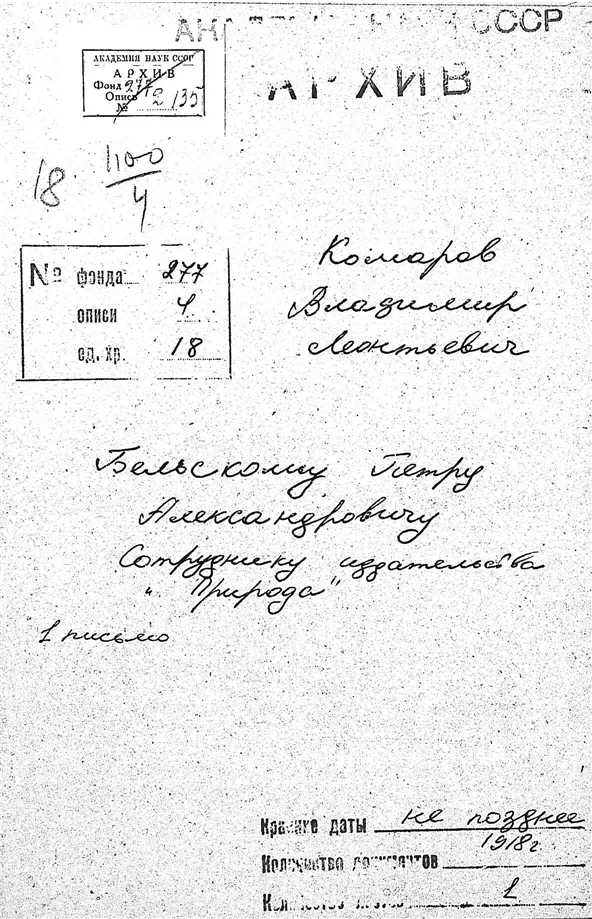 АКАДЕМИЯ НАУК СССР
АРХИВ
АКАДЕМИЯ НАУК СССР
АРХИВ
Фонд 277
Опись 2
№ 135
18 1100/4
№ фонда 277
описи 4
ед. хр. 18
Комаров
Владимир
Леонтьевич
Бельскому Петру
Александровичу
Сотруднику издательства
"Природа"
1 письмо
Крайние даты не позднее
1918 г.
Количество документов
Количество листов 1